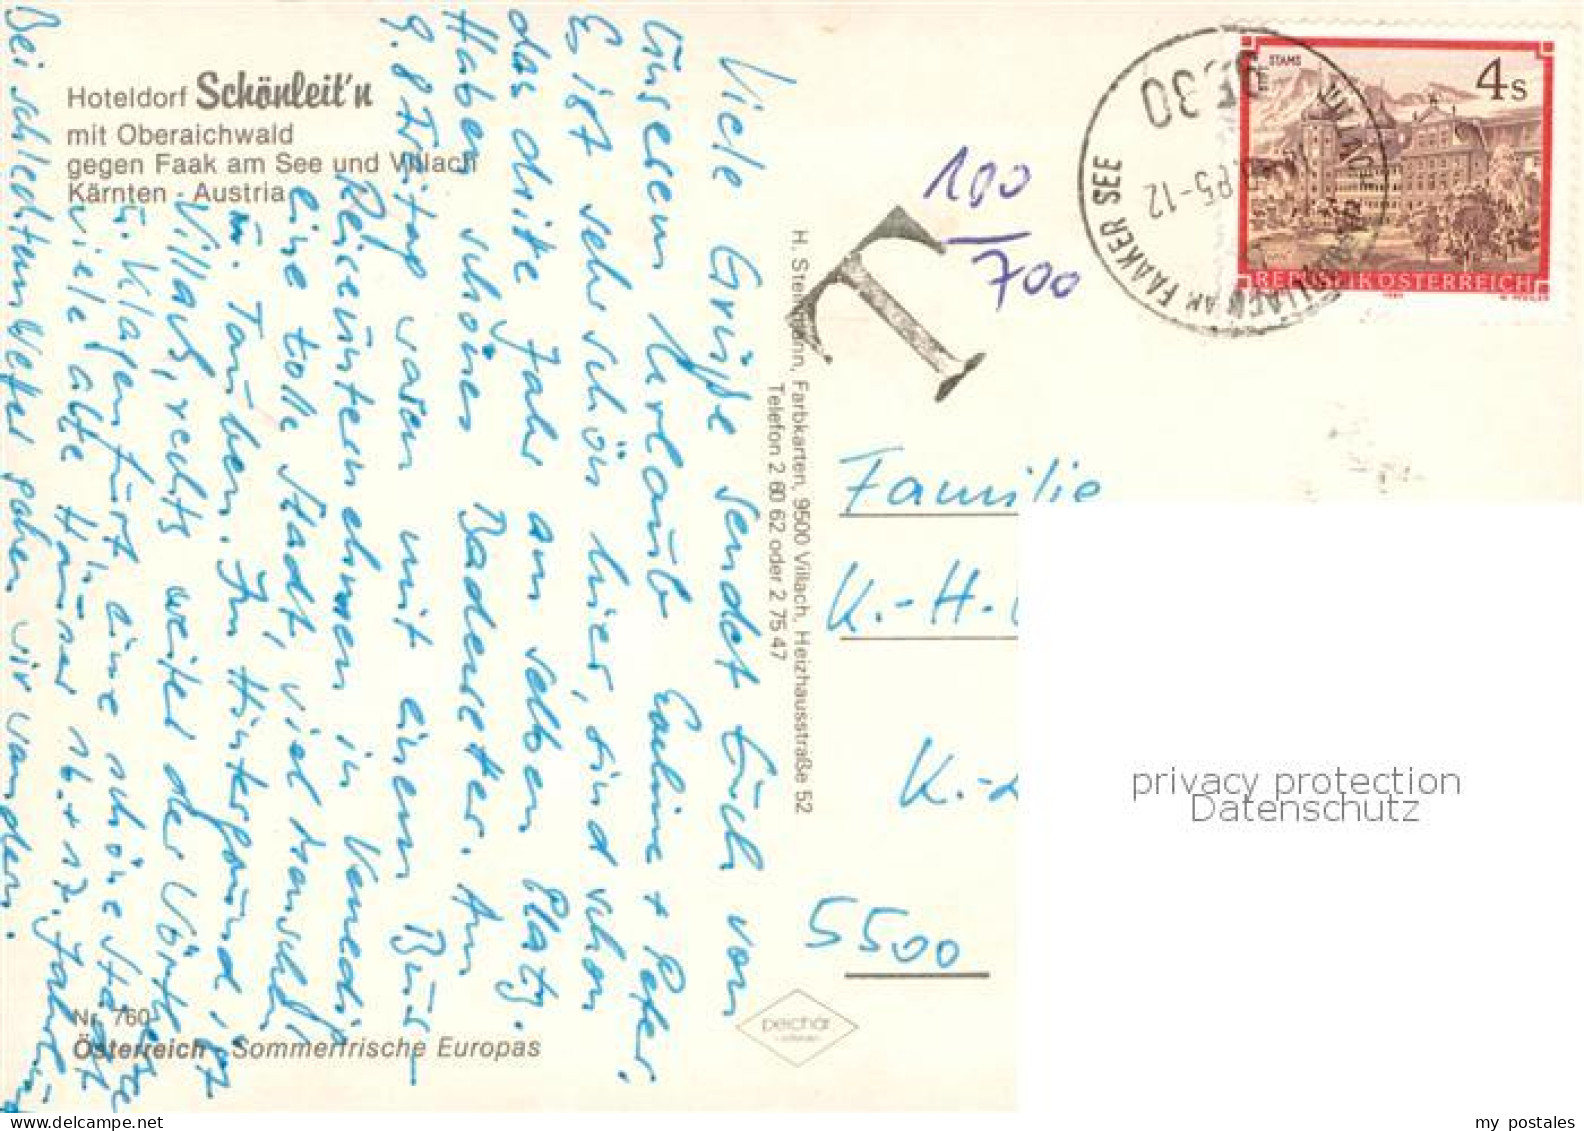 Hoteldorf Schönleit'n
mit Oberaichwald
gegen Faak am See und Villach
Kärnten - Austria
Viele Grüße sendet Euch von
unserem Urlaub
+ Peter.
Es ist sehr schön hier, sind schon
das dritte Jahr am selben Platz.
Haben schönes Badewetter. Am
9.8 Freitag waren mit einem Bus-
Reiseunternehmen in Venedig
eine tolle Stadt, viel Mensch
u. Tauben. Im Hintergrund ist
Villach, rechts weiter der Wörthersee
u. Klagenfurt eine schöne Stadt
viele alte Häuser 16. + 17. Jahrhu
Bei schlechtem Wetter gehen wir wandern.
Nr. 760
Österreich - Sommerfrische Europas
H. Steinmann, Farbkarten, 9500 Villach, Heizhausstraße 52
Telefon 2 60 62 oder 2 75 47
peichär
T
100
700
FAAKER SEE
85-12
STAMS
4 S
REPUBLIK ÖSTERREICH
Familie
K.-H.
K.-
5500
privacy protection
Datenschutz
my postales